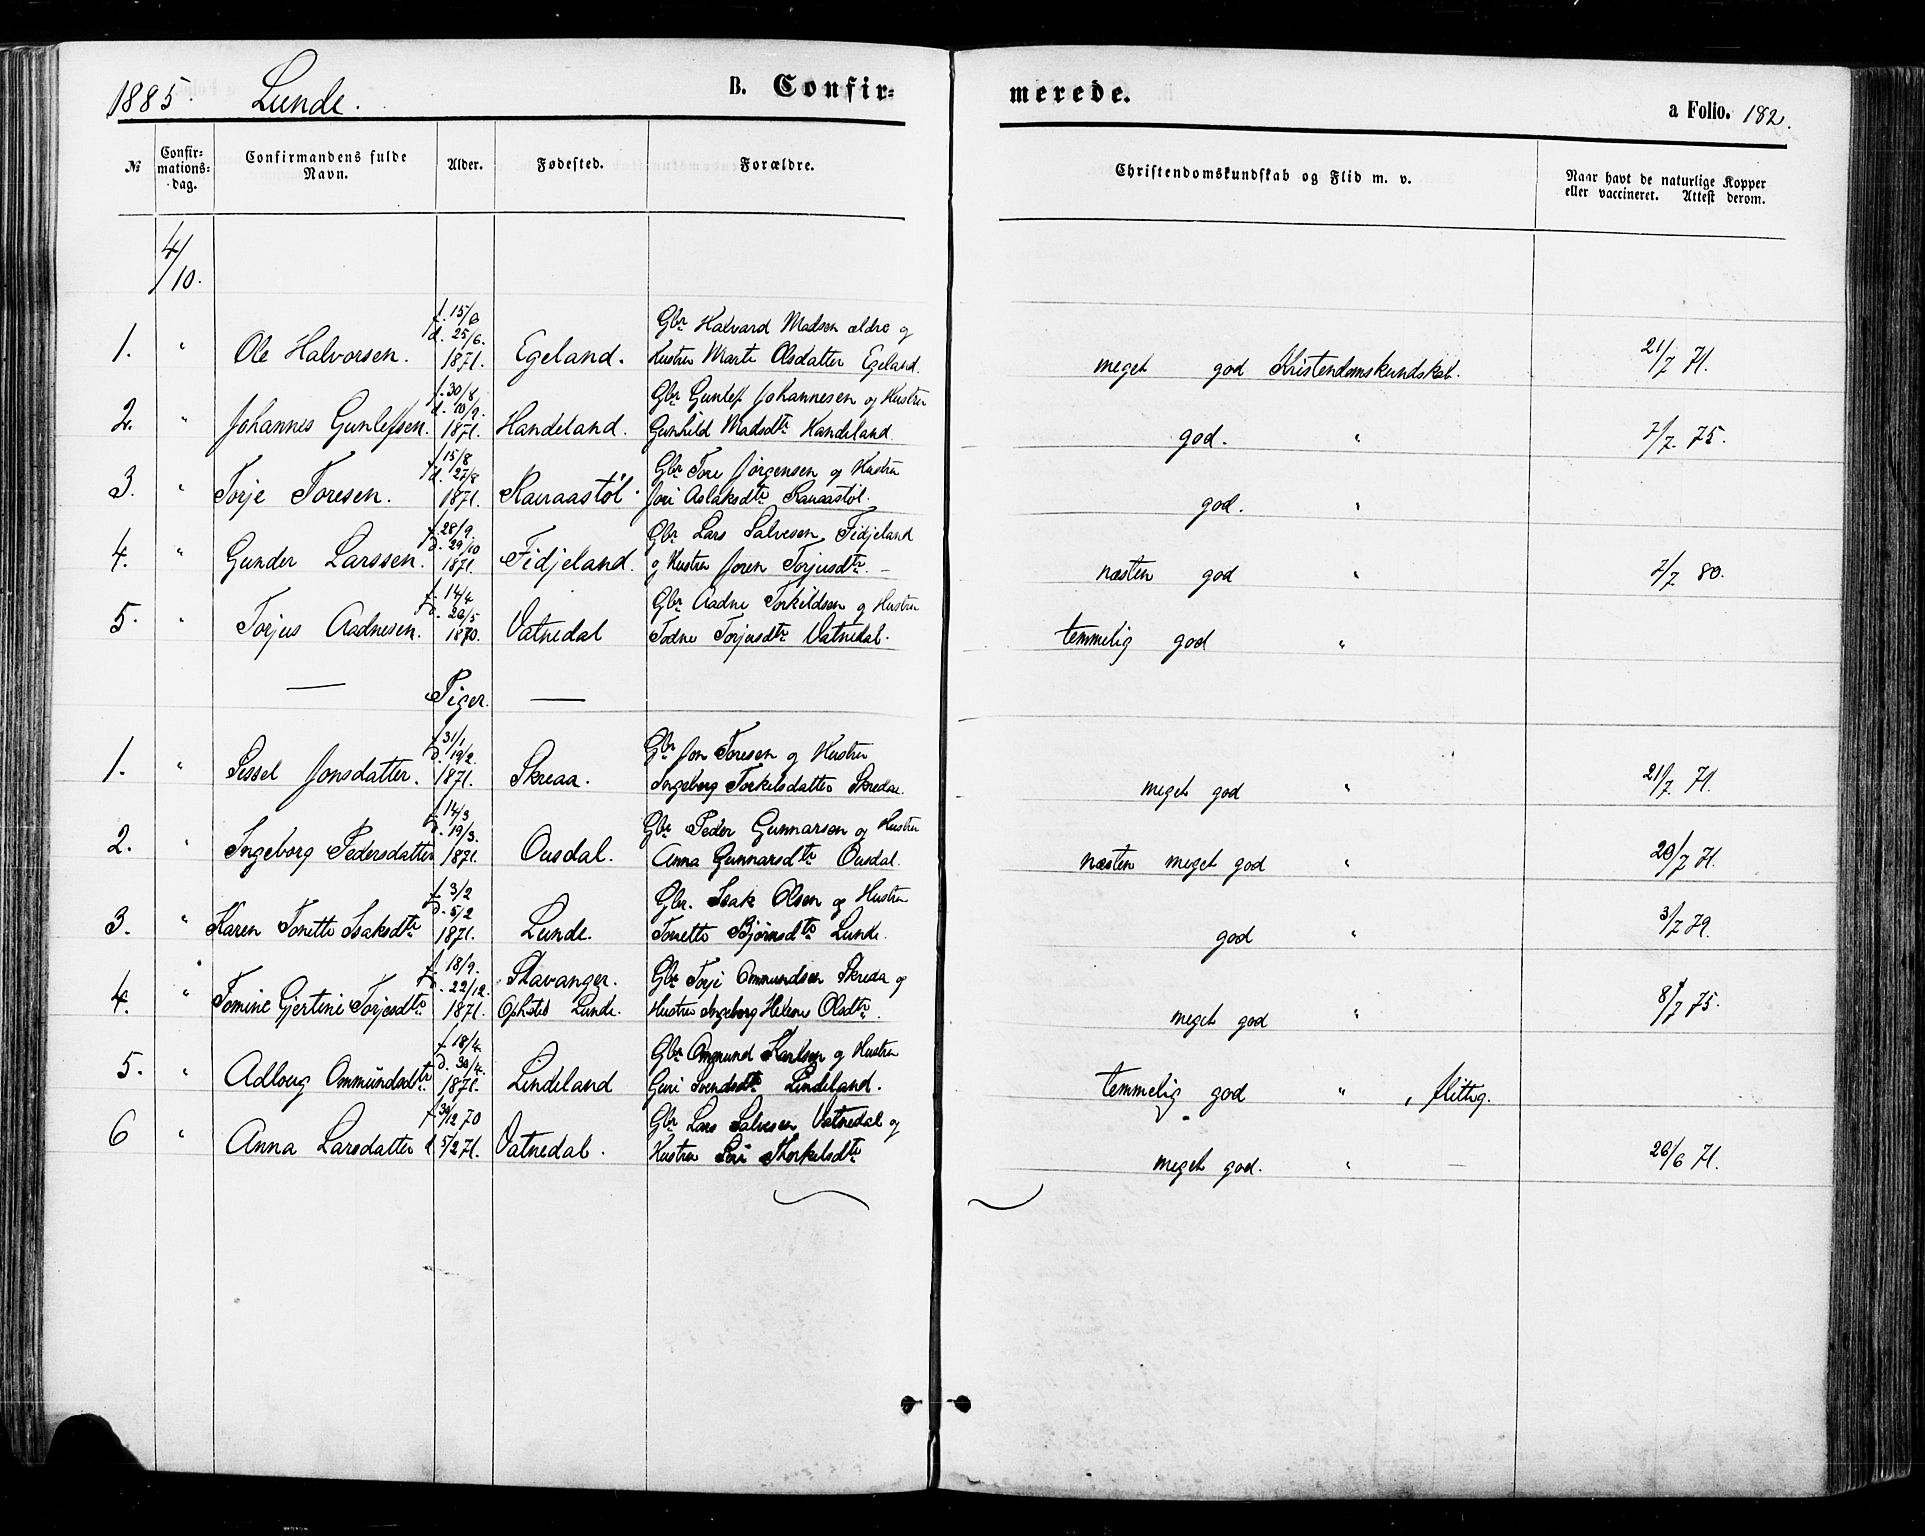 1885. Lunde.
B. Confir-
merede.
a Folio. 182.
№
Confir-
mations-
dag.
Confirmandens fulde
Navn.
Alder.
Fødested.
Forældre.
Christendomskundskab og Flid m. v.
Naar havt de naturlige Kopper
eller vaccineret. Attest derom.
4/10.
f. 15/6
d. 25/6.
Gbr Halvard Madsen ældre og
1. " Ole Halvorsen. 1871. Egeland. Hustru Marte Olsdatter Egeland. meget god Kristendomskundskab. 21/7 71.
f. 30/8
d. 10/9.
Gbr Gunlef Johannesen og Hustru
2. " Johannes Gunlefsen. 1871. Handeland. Gunhild Madsdtr Handeland god. " 7/7. 75.
f. 15/8
d. 27/8
Gbr Tore Jørgensen og Hustru
3. " Torje Toresen. 1871. Ravaastøl. Jori Aslaksdtr Ravaastøl. god. "
f. 28/9.
d. 29/10
Gbr Lars Salvesen Fidjeland
4. " Gunder Larssen. 1871. Fidjeland. og Hustru Joren Torjusdtr. — næsten god " 7/7 80.
f. 14/4
d. 26/5
Gbr Aadne Torkildsen og Hustru
5. " Torjus Aadnesen. 1870. Vatnedal Todne Torjusdtr Vatnedal. temmelig god "
— Piger. —
f. 31/1
d. 19/2.
Gbr Jon Toresen og Hustru
1. " Sissel Jonsdatter. 1871. Skreaa. Ingeborg Torkelsdatter Skredaa. meget god " 21/7. 71.
f. 14/3
d. 19/3.
Gbr Peder Gunnarsen og Hustru
2. " Ingeborg Pedersdatter 1871. Ousdal. Anna Gunnarsdtr Ousdal. næsten meget god " 20/7 71.
f. 3/2
d. 5/2
Gbr. Isak Olsen og Hustru
3. " Karen Tonette Isaksdtr 1871. Lunde. Tonette Bjørnsdtr Lunde. god " 3/7 79.
f. 18/9.
d. 22/12.
Stavanger. Gbr Torje Ommundsen Skreda og
4. " Tomine Gjertine Torjesdtr 1871. Opholdt Lunde. Hustru Ingeborg Helene Olsdtr. meget god " 8/7 75.
f. 18/4.
d. 30/4.
Gbr Omund Karlsen og Hustru
5. " Adloug Ommundsdtr 1871. Lindeland Guri Svendsdtr Lindeland. temmelig god " , flittig.
f. 30/12 70 Gbr Lars Salvesen Vatnedal og
6 " Anna Larsdatter d. 5/2 71. Vatnedal. Hustru Siri Thorkelsdtr meget god. " — 26/6 71.